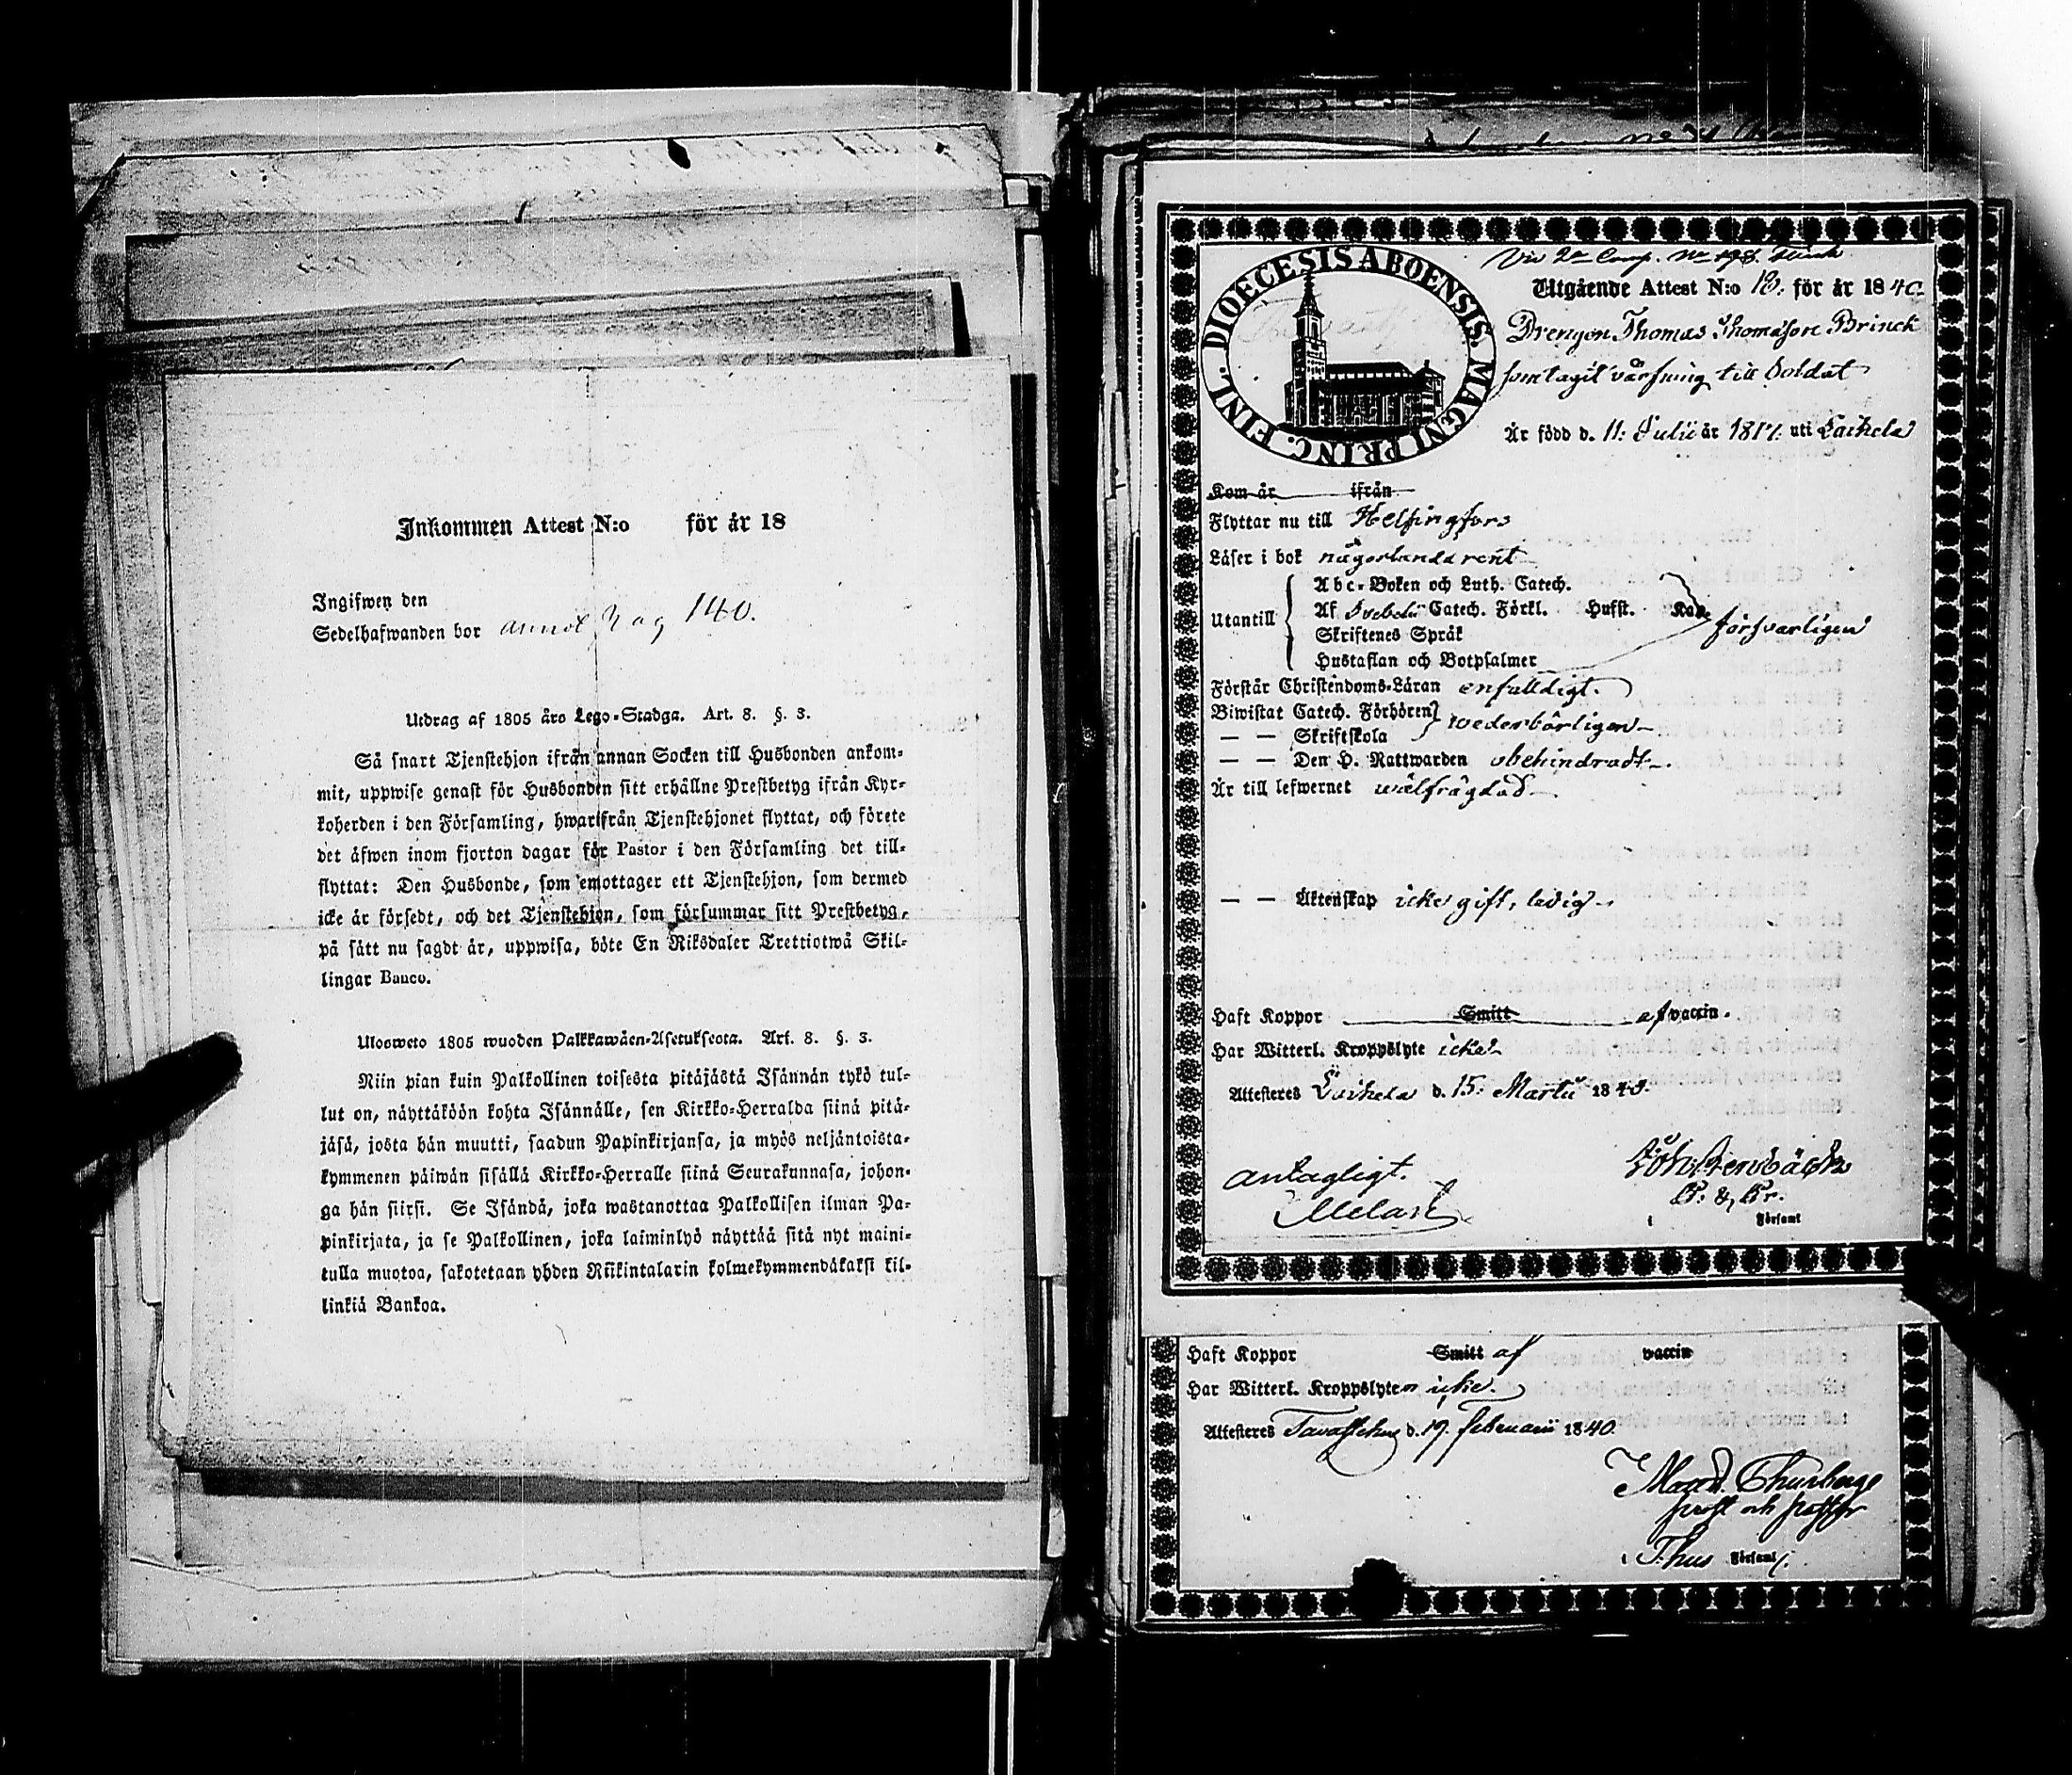 Inkommen Attest N:o för år 18
Ingifwen den
Sedelhafwanden bor annot. pag 140.
Utdrag af 1805 års Lego-Stadga. Art. 8. §. 3.
Så snart Tjenstehjon ifrån annan Socken till Husbonden ankom-
mit, uppwise genast för Husbonden sitt erhållne Prestbetyg ifrån Kyr-
koherden i den Församling, hwarifrån Tjenstehjonet flyttat, och förete
det äfwen inom fjorton dagar för Pastor i den Församling det till-
flyttat: Den Husbonde, som emottager ett Tjenstehjon, som dermed
icke är försedt, och det Tjenstehjon, som försummar sitt Prestbetyg,
på sätt nu sagdt är, uppwisa, böte En Riksdaler Trettiotwå Skil-
lingar Banco.
Ulosweto 1805 wuoden Palkkawäen-Asetuksesta. Art. 8. §. 3.
Niin pian kuin Palkollinen toisesta pitäjästä Isännän tykö tul-
lut on, näyttäköön kohta Isännälle, sen Kirkko-Herralda siinä pitä-
jäsä, josta hän muutti, saadun Papinkirjansa, ja myös neljäntoista-
kymmenen päiwän sisällä Kirkko-Herralle siinä Seurakunnasa, johon-
ga hän siirsi. Se Isändä, joka wastanottaa Palkollisen ilman Pa-
pinkirjata, ja se Palkollinen, joka laiminlyö näyttää sitä nyt maini-
tulla muotoa, sakotetaan yhden Riikintalarin kolmekymmendäkaksi kil-
linkiä Bankoa.
DIOECESIS ABOENSIS. MAGNI PRINC. FINL.
Wid 2a Comp. No 198.
Utgående Attest N:o 18. för år 1840.
Drengen Thomas Thomasson Brinck
som tagit värfning till Soldat
Är född d. 11: Julii år 1817. uti Laihela
Kom år ifrån
Flyttar nu till Helsingfors
Läser i bok någorlunda rent
Utantill
Abc-Boken och Luth. Catech.
Af Svebelii Catech. Förkl. Husst. Kap.
Skriftenes Språk
Hustaflan och Botpsalmer
försvarligen
Förstår Christendoms-Läran enfalldigt.
Biwistat Catech. Förhören
— — Skriftskola
wederbörligen
— — Den H. Nattwarden obehindradt.
Är till lefwernet wälfrägdad
— — Äktenskap icke gift, ledig.
Haft Koppor Smitt af vaccin.
Har Witterl. Kroppslyte icke
Attesteres Laihela d. 15. Martii 1840.
antagligt.
Melart
C. & Kr.
i Församl
Haft Koppor Smitt af vaccin
Har Witterl. Kroppslyten icke.
Attesteres Tavastehus d. 19. februarii 1840.
Thunberg
prost och pastor
i T:hus Församl.